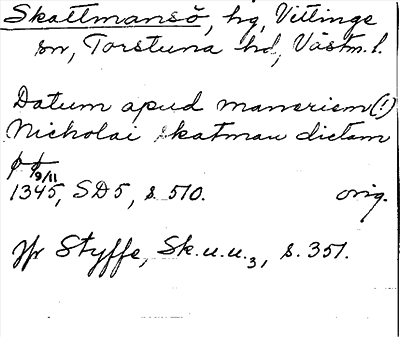 Skattmansö, hg, Vittinge
sn, Torstuna hd, Västm. l.
Datum apud manerium (!)
Nicholai skatman dictam
9/11
1345, SD5, s. 510. orig.
Jfr Styffe, Sk.u.u.3, s. 351.